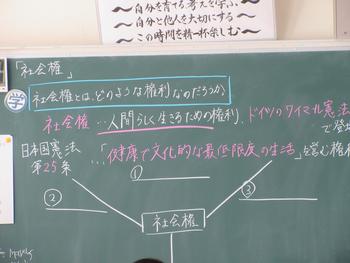 ～自分を育てる考えを学ぶ～
～自分と他人を大切にする～
～この時間を精一杯楽しむ～
「社会権」
学 社会権とは、どのような権利なのだろうか。
社会権…人間らしく生きるための権利、ドイツのワイマル憲法
で登
日本国憲法
第25条
…「健康で文化的な最低限度の生活」を営む権利
①
② ③
社会権